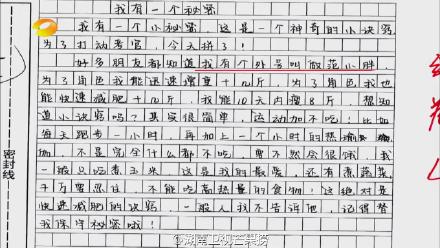 我有一个秘密
我有一个小秘密，这是一个神奇的小诀窍，
为了打动考官，今天拼了！
好多朋友都知道我有个外号叫做范小胖，
为了角色我能迅速增重十几斤，为了角色我也
能快速减肥十几斤，我能10天内瘦8斤，想知
道小诀窍吗？其实很简单，运动加不吃！比如
每天跑步一小时，再加上一个小时的热瑜
伽，不是完全什么都不吃，要不然会很饿，我
一般只吃煮玉米，这是我的最爱，还有煮蔬菜，
千万要忍住，不能吃高热量的食物！这绝对是
快速减肥的诀窍，一般人我不告诉他，记得替
我保守秘密哦！
密封线
@湖南卫视芒果捞